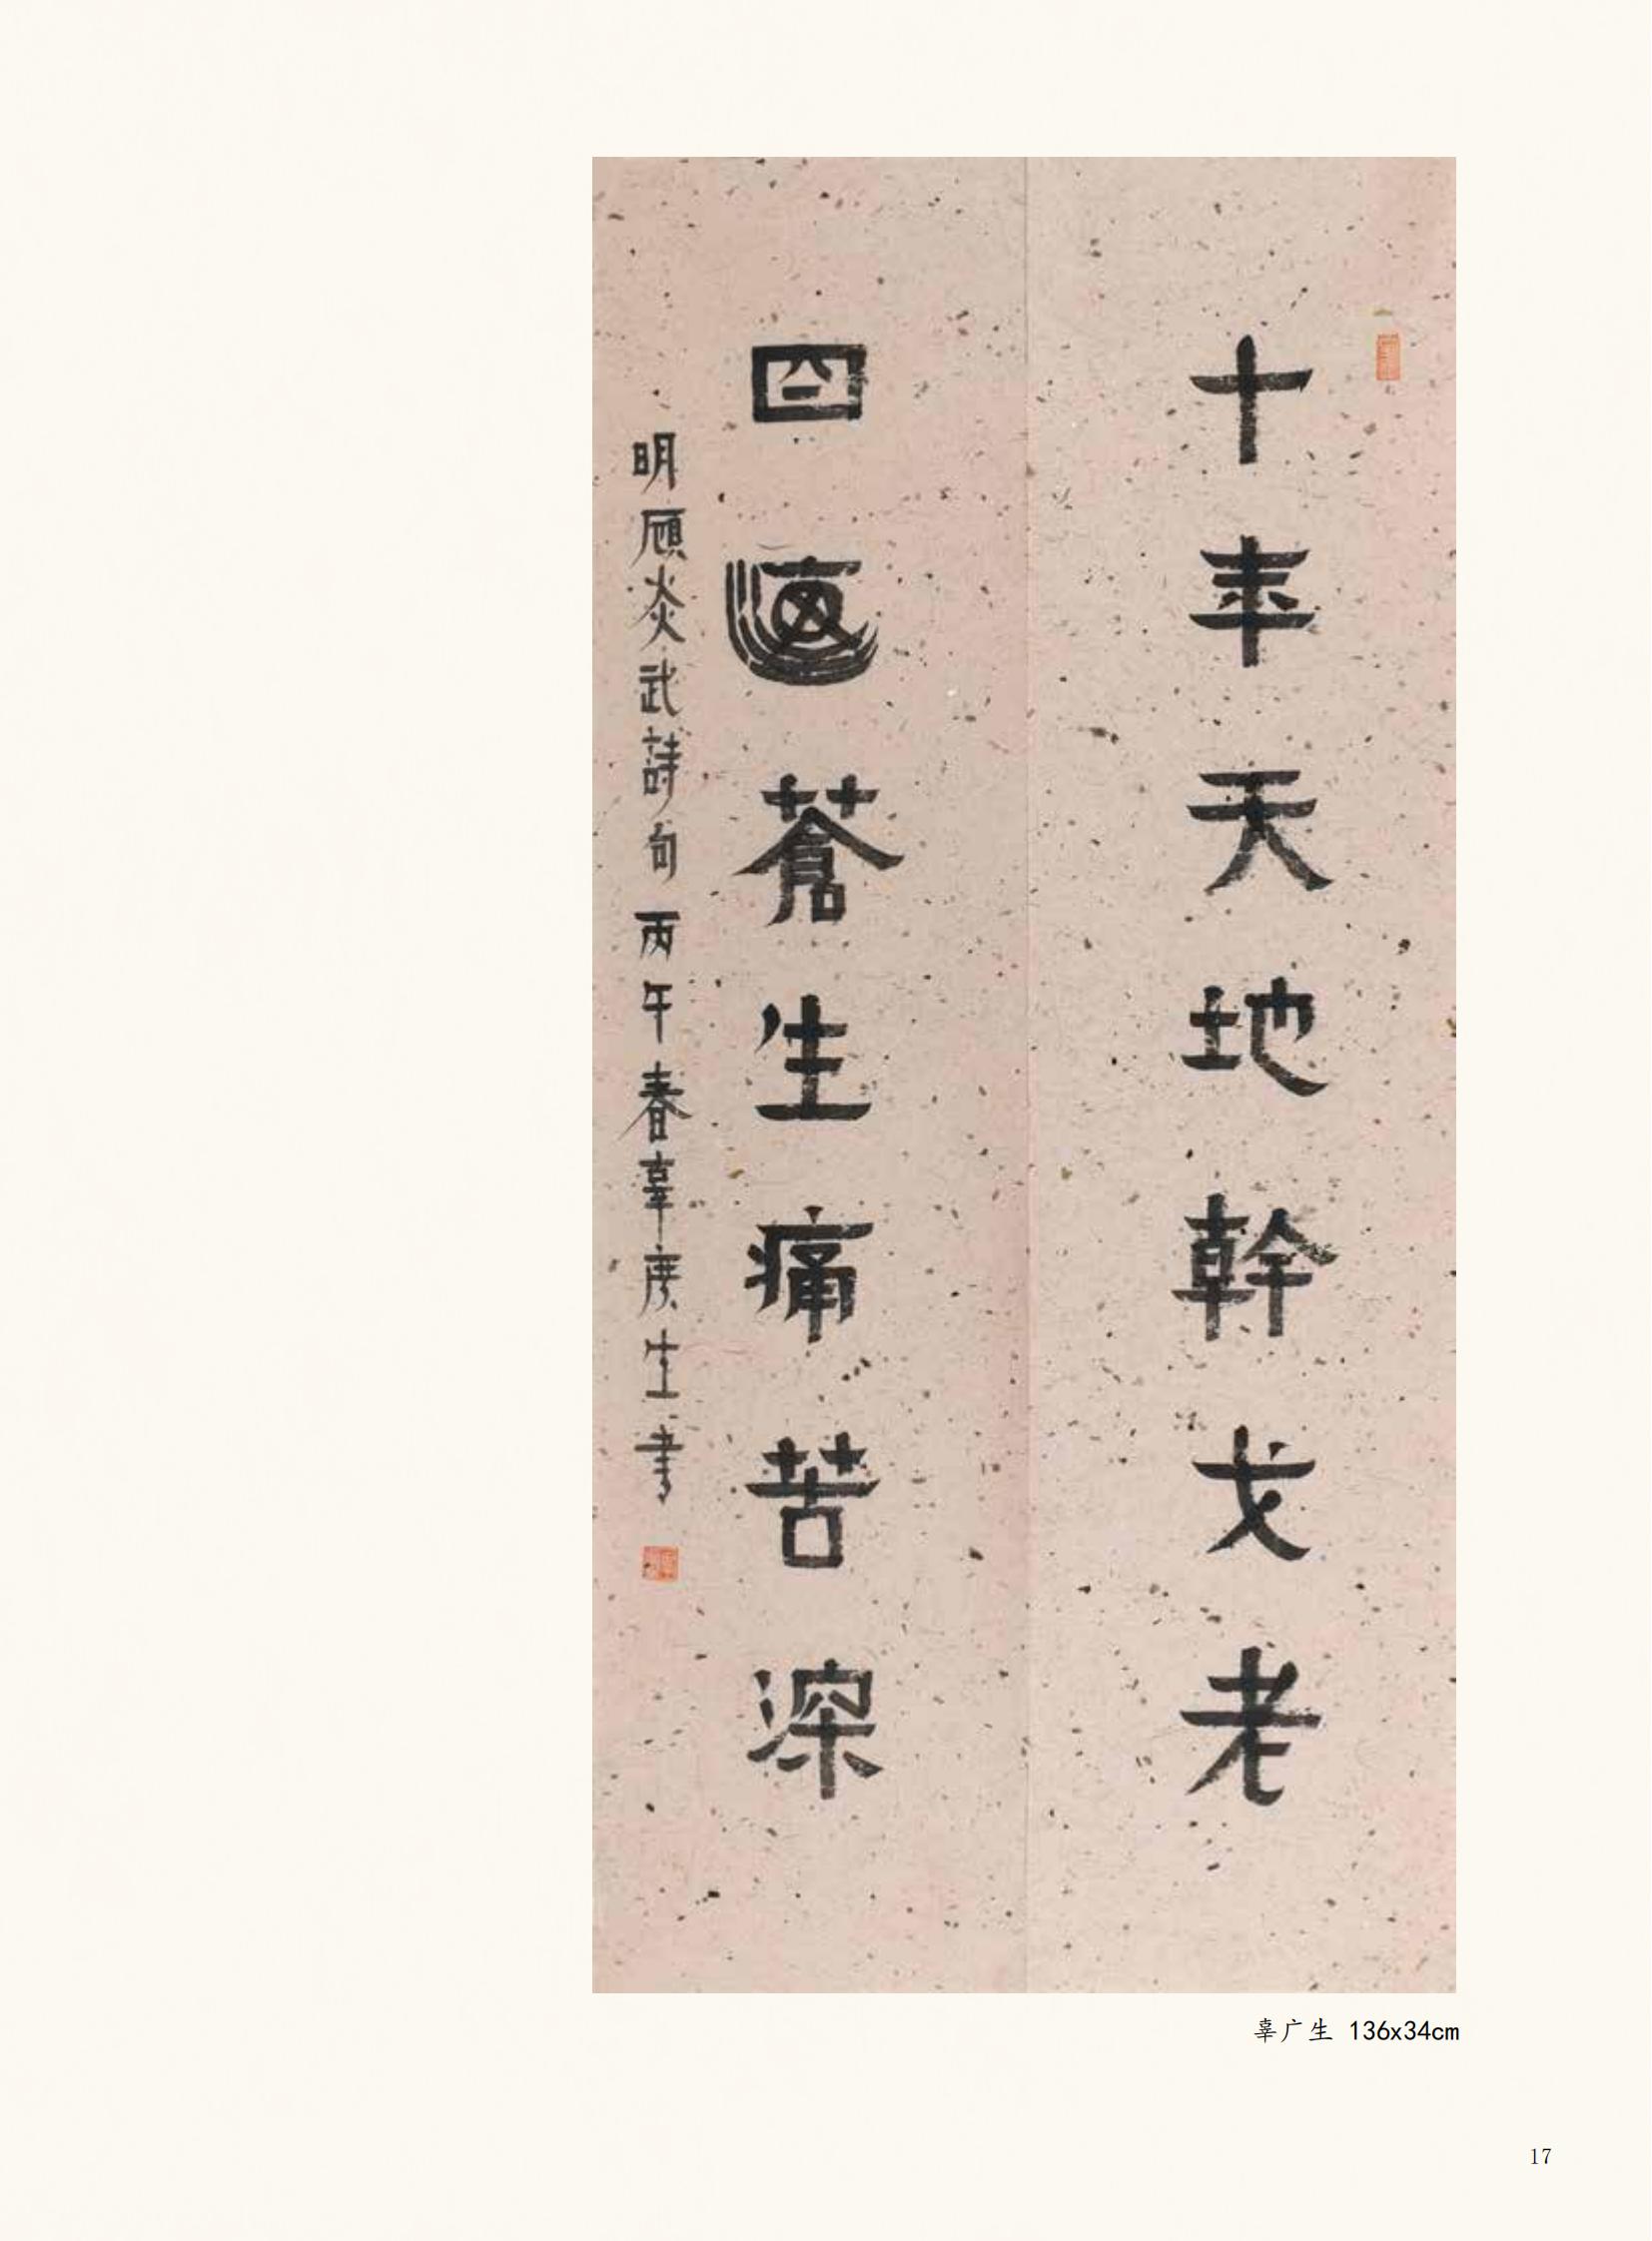 十年天地幹戈老
四海蒼生痛苦深
明顧炎武詩句 丙午春辜廣生書
辜广生 136x34cm
17